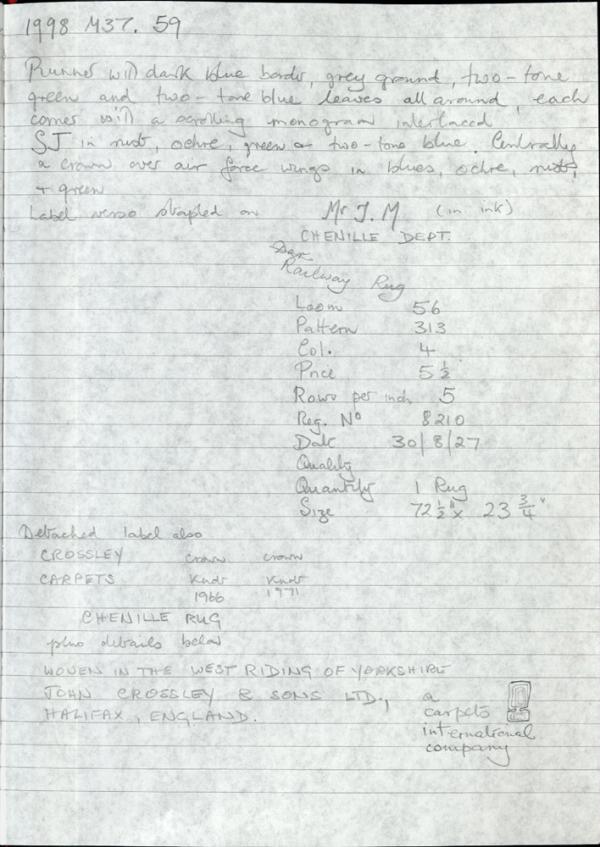 1998 M37. 59
Runner with dark blue border, grey ground, two-tone
green and two-tone blue leaves all around, each
corner with a scrolling monogram interlaced
SJ in rust, ochre, green & two-tone blue. Centrally
a crown over air force wings in blues, ochre, rust,
+ green
Label verso stapled on Mr J. M (in ink)
CHENILLE DEPT.
Railway Rug
Loom 56
Pattern 313
Col. 4
Price 5 ½
Rows per inch 5
Reg. Nº 8210
Date 30/8/27
Quality
Quantity 1 Rug
Size 72 ½" x 23 ¾"
Detached label also
CROSSLEY crown crown
CARPETS
1966 1971
CHENILLE RUG
plus details below
WOVEN IN THE WEST RIDING OF YORKSHIRE
JOHN CROSSLEY & SONS LTD., a
HALIFAX, ENGLAND. carpets
international
company